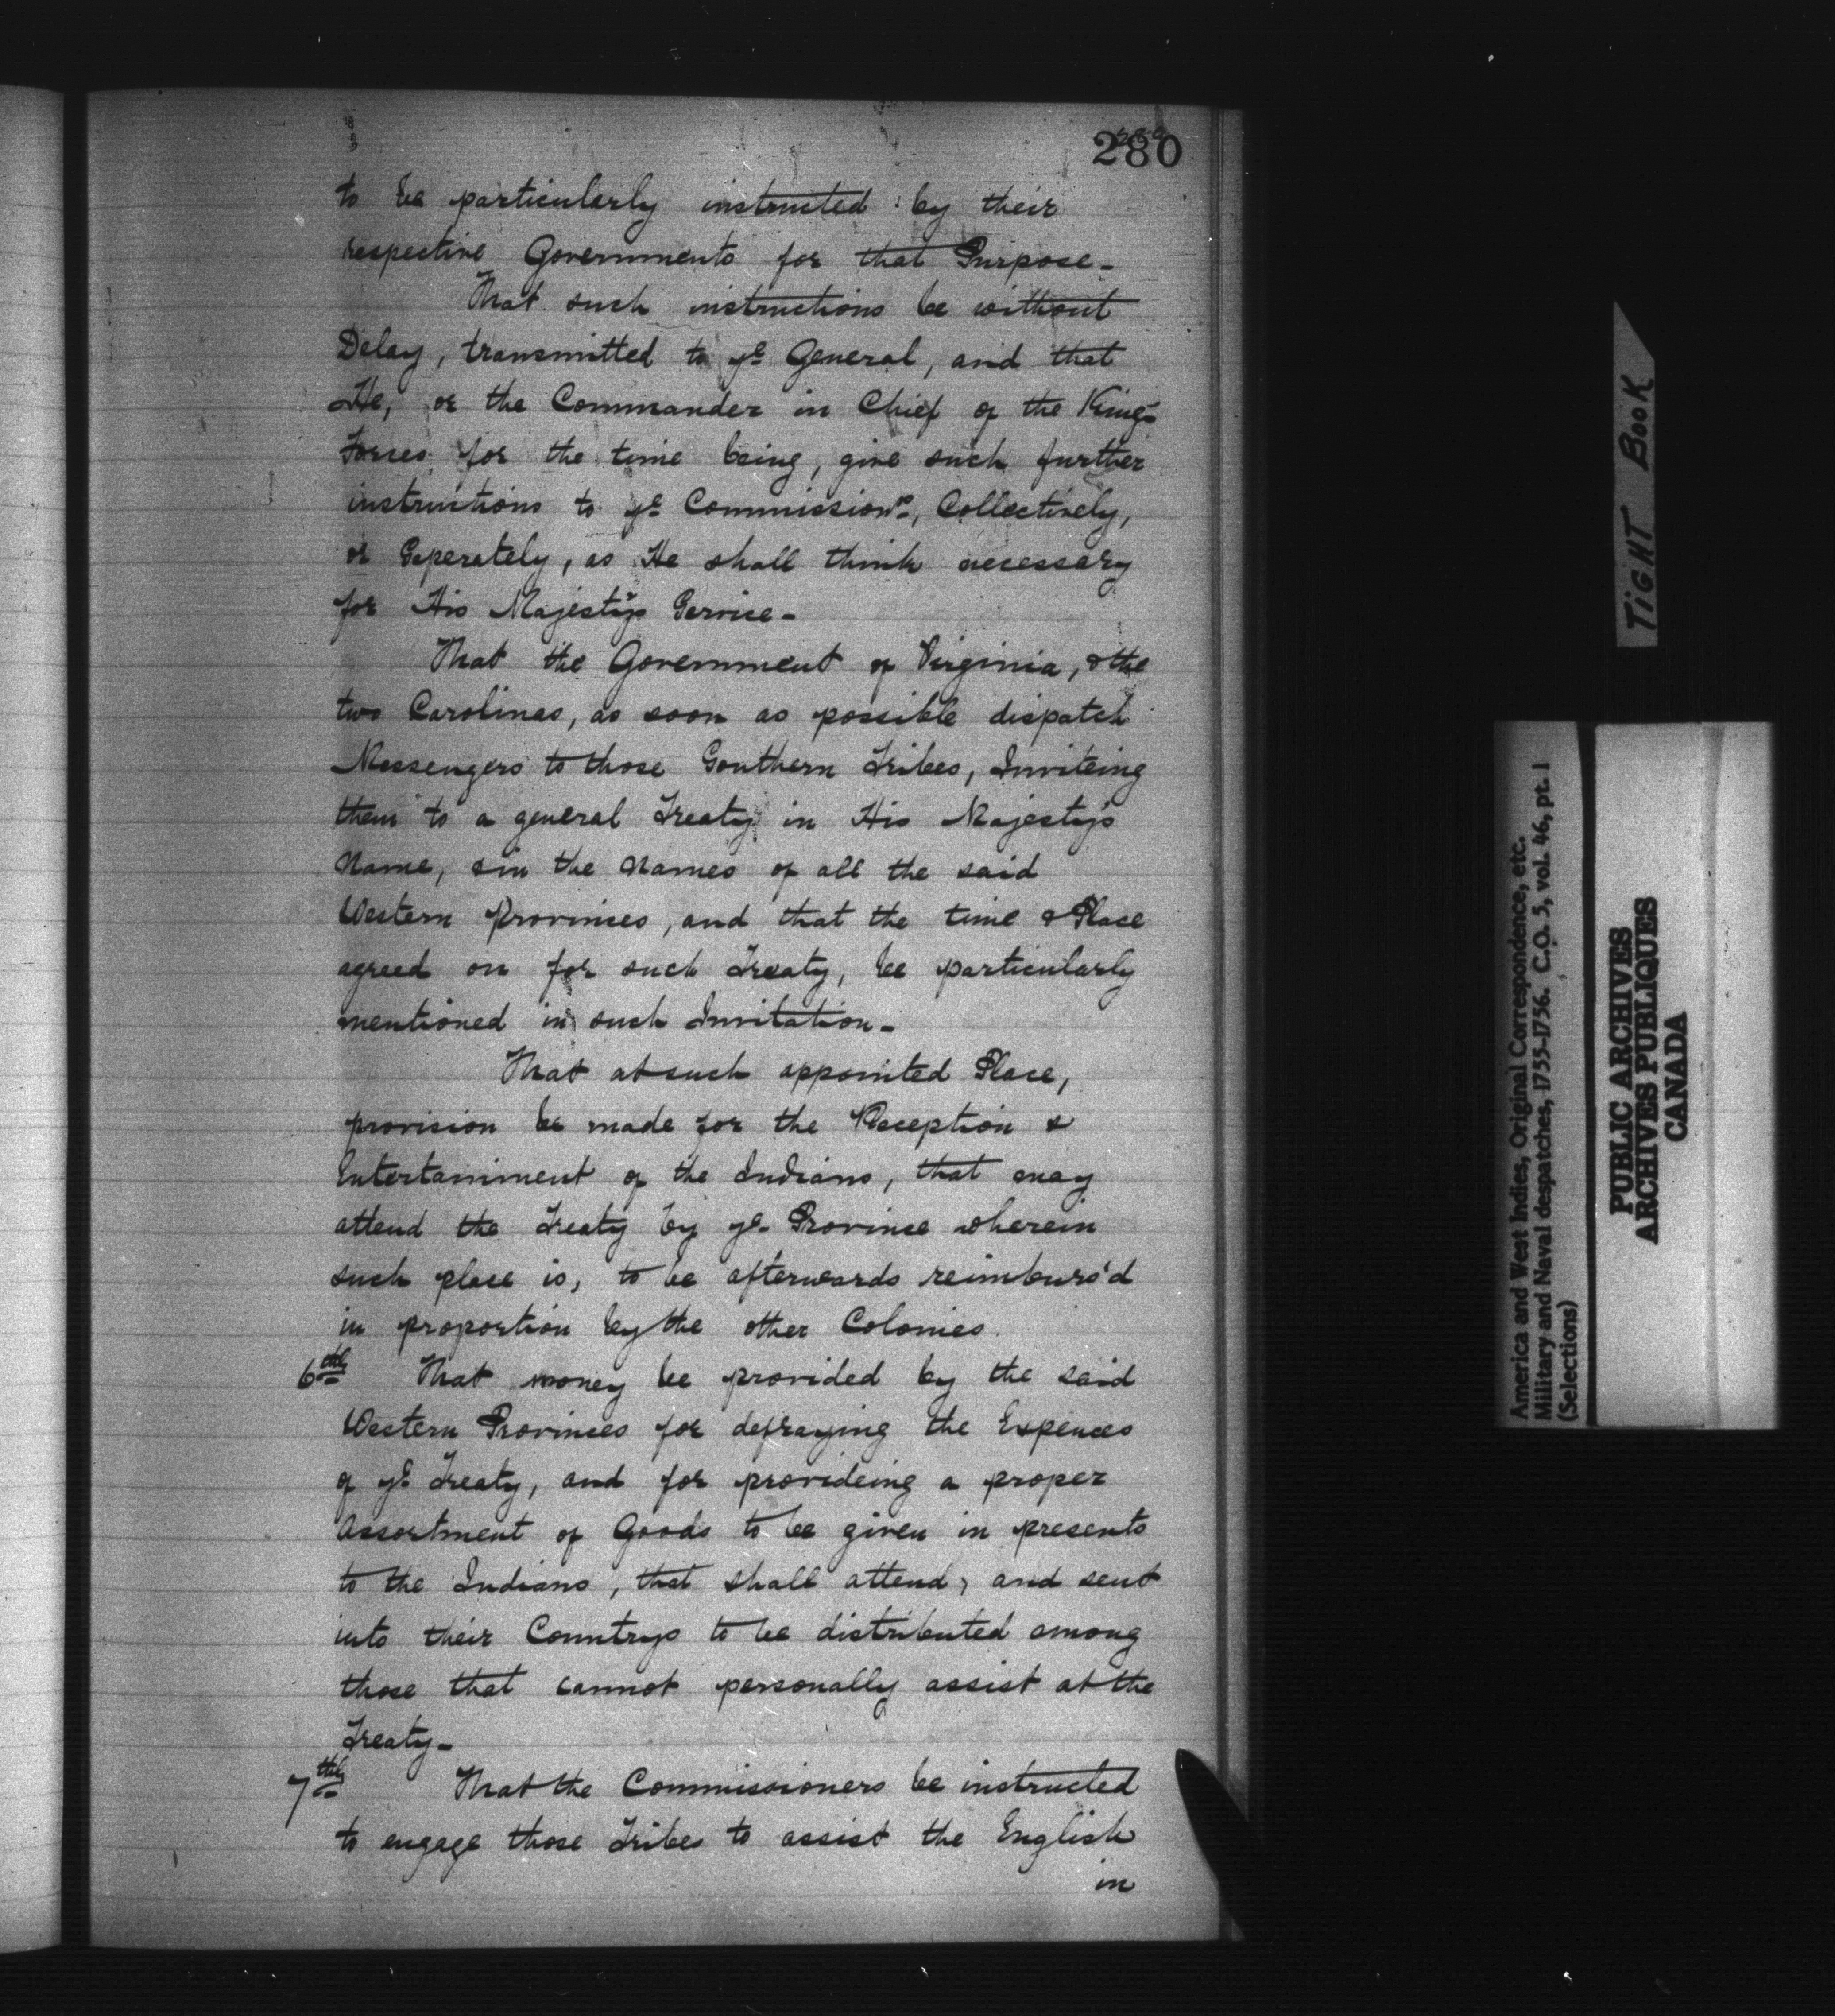 280
to be particularly instructed by their
respective Governments for that Purpose-
That such instructions be without
Delay, transmitted to yᵉ General, and that
He, or the Commander in Chief of the King's
Forces for the time being, give such further
instructions to yᵉ Commissionʳˢ, Collectively,
or Seperately, as He shall think necessary
for His Majesty's Service-
That the Government of Virginia, & the
two Carolinas, as soon as possible dispatch
Messengers to those Southern Tribes, Inviteing
them to a general Treaty in His Majesty's
Name, & in the Names of all the said
Western Provinces, and that the time & Place
agreed on for such Treaty, be particularly
mentioned in such Invitation-
That at such appointed Place,
provision be made for the Reception &
Entertainment of the Indians, that may
attend the Treaty by yᵉ Province wherein
such place is, to be afterwards reimburs'd
in proportion by the other Colonies.
6thly That money be provided by the said
Western Provinces for defraying the Expences
of yᵉ Treaty, and for provideing a proper
Assortment of Goods to be given in presents
to the Indians, that shall attend, and sent
into their Countrys to be distributed among
those that cannot personally assist at the
Treaty-
7thly That the Commissioners be instructed
to engage those Tribes to assist the English
in
TIGHT BOOK
America and West Indies, Original Correspondence, etc.
Military and Naval despatches, 1755-1756. C.O. 5, vol. 46, pt. 1
(Selections)
PUBLIC ARCHIVES
ARCHIVES PUBLIQUES
CANADA